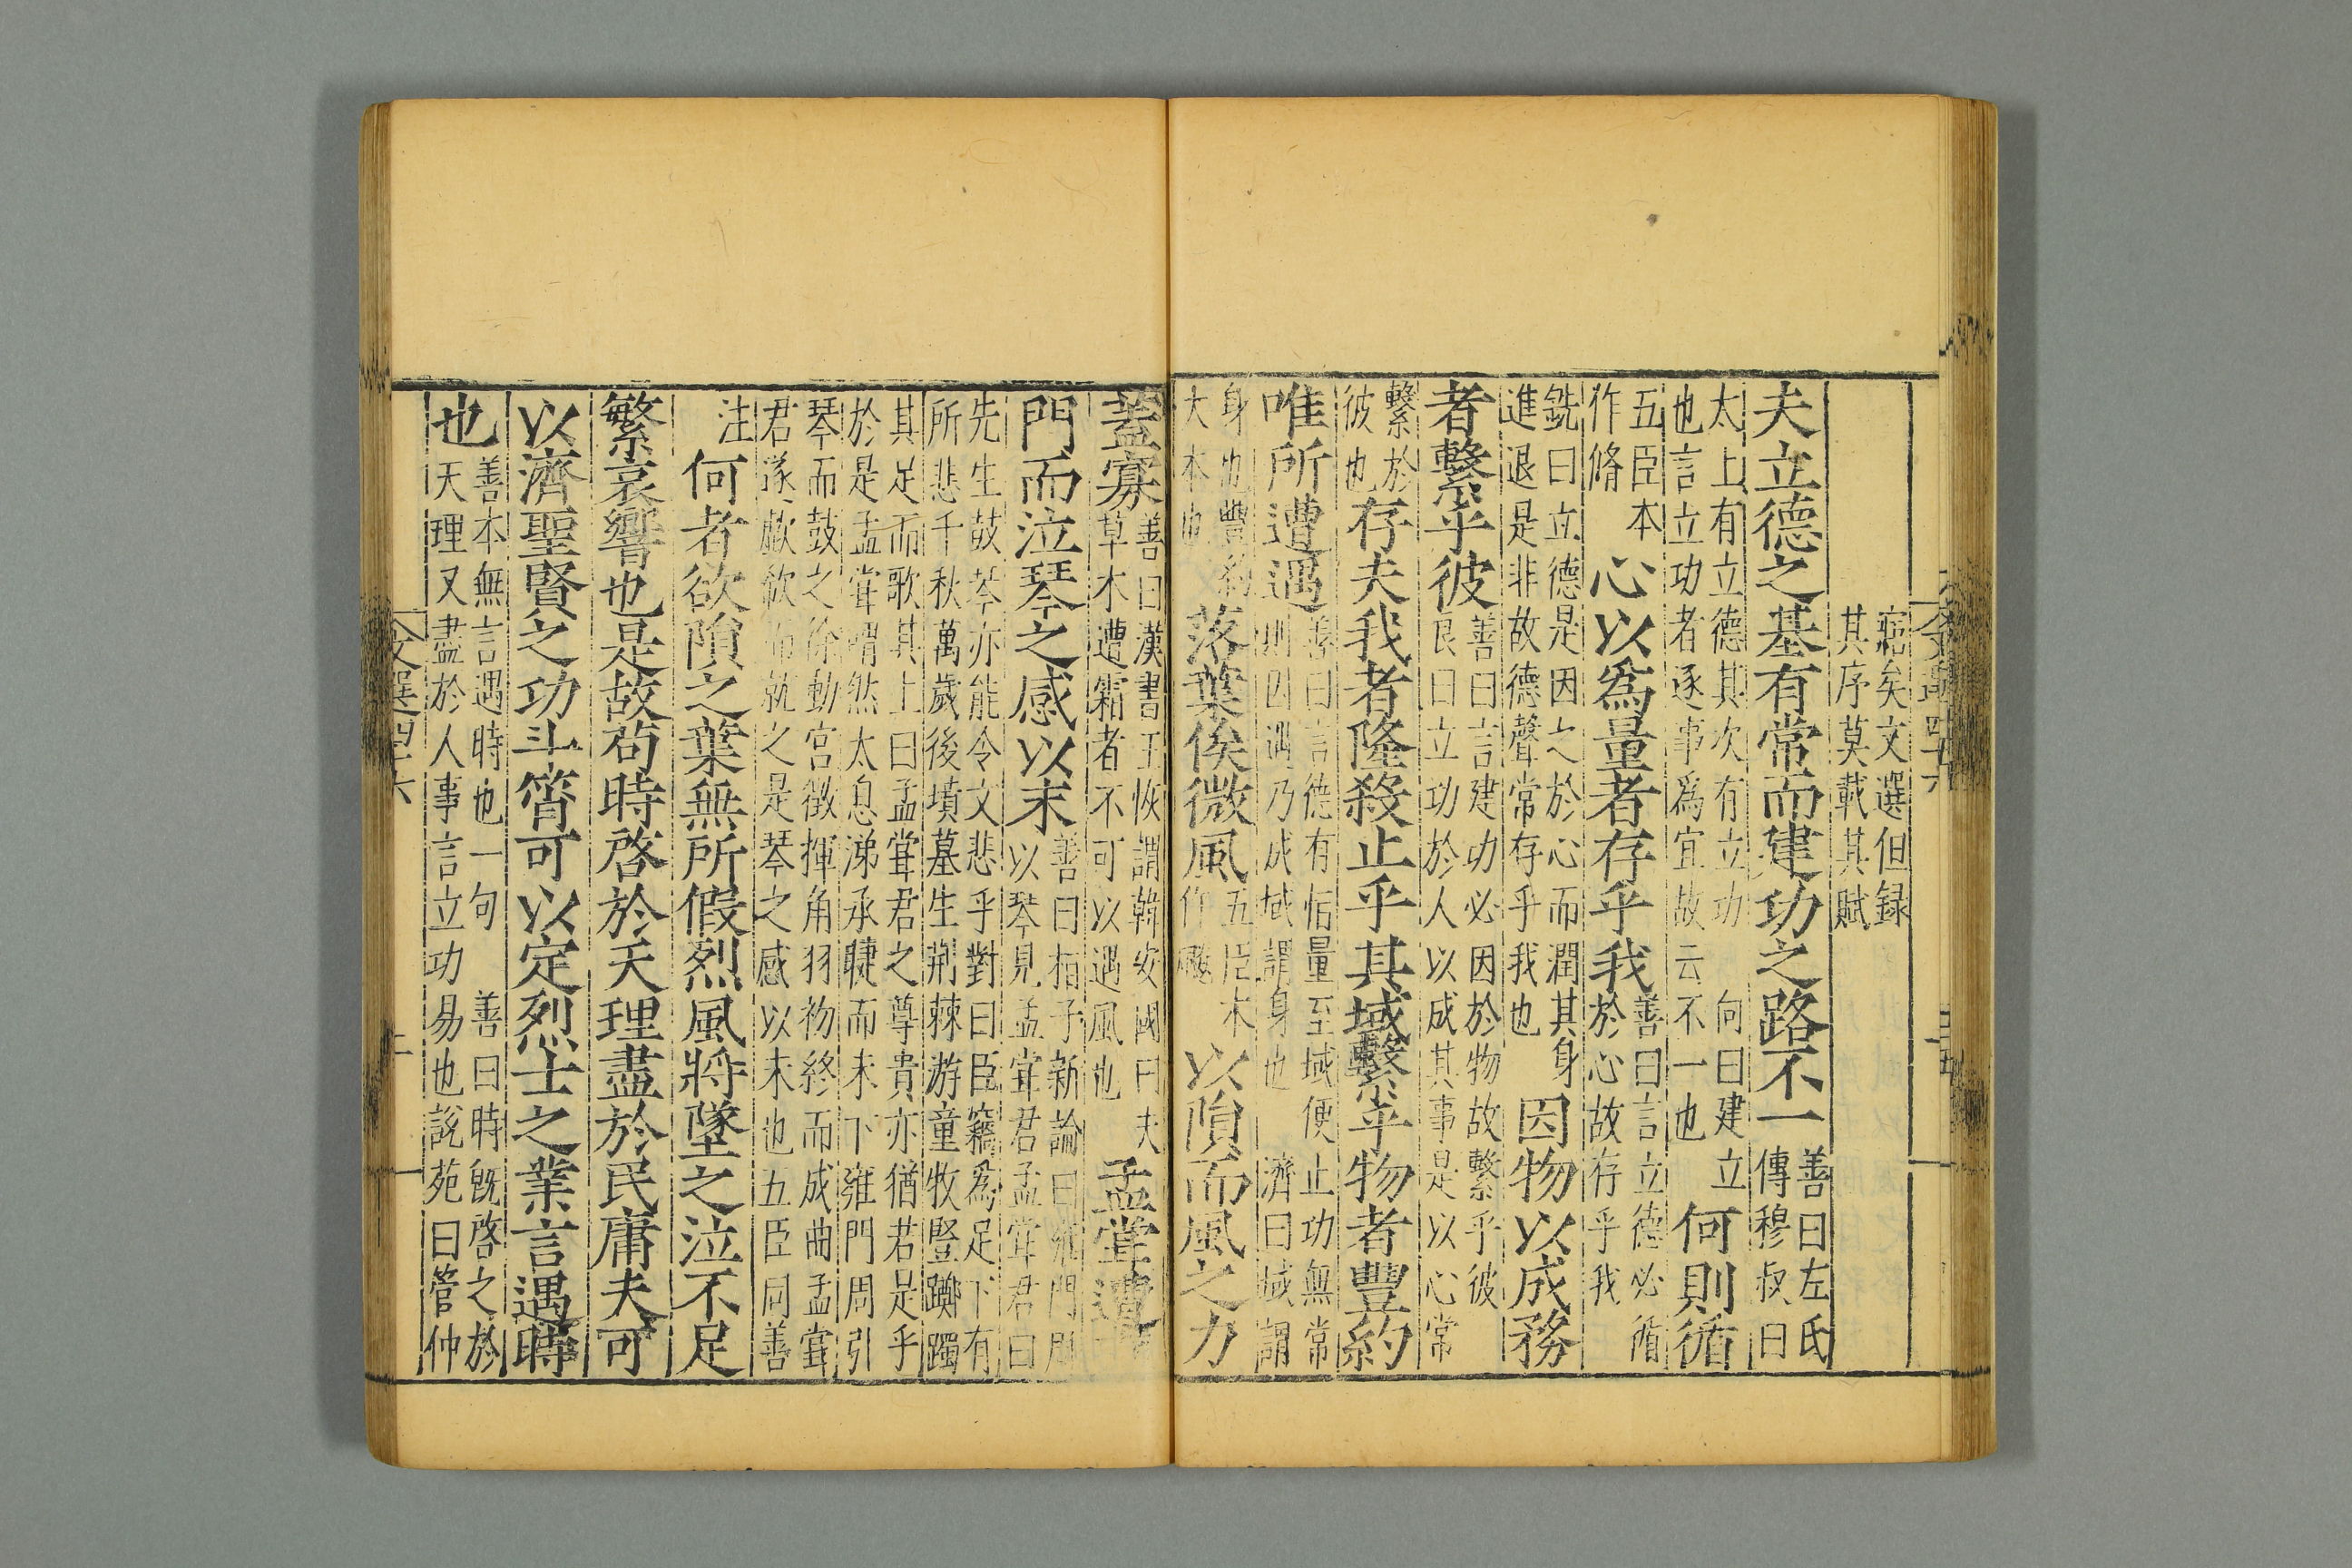 寤矣文選但録
其序莫載其賦
夫立德之基有常而建功之路不一善曰左氏傳穆叔曰
太上有立德其次有立功 向曰建立也言立功者逐事爲宜故云不一也何則循
五臣本作脩心以爲量者存乎我善曰言立德必循於心故存乎我
銑曰立德是因之於心而潤其身進退是非故德聲常存乎我也因物以成務
者繫乎彼善曰言建功必因於物故繫乎彼良曰立功於人以成其事是以心常
繫於彼也存夫我者隆殺止乎其域繫乎物者豐約
唯所遭遇善曰言德有恒量至域便止功無常則因遇乃成域謂身也 濟曰域謂
身也豐約大本也落葉俟微風五臣本作飈以隕而風之力
蓋寡善曰漢書王恢謂韓安國曰夫草木遭霜者不可以遇風也孟甞遭
門而泣琴之感以末善曰桓子新論曰雍門周以琴見孟甞君孟甞君曰
先生鼓琴亦能令文悲乎對曰臣竊爲足下有所悲千秋萬歲後墳墓生荆棘游童牧豎躑躅
其足而歌其上曰孟甞君之尊貴亦猶若是乎於是孟甞喟然太息涕承睫而未下雍門周引
琴而鼓之徐動宮徵揮角羽初終而成曲孟甞君遂歔欷而就之是琴之感以末也五臣同善
注何者欲隕之葉無所假烈風將墜之泣不足
繁哀響也是故苟時啓於天理盡於民庸夫可
以濟聖賢之功斗筲可以定烈士之業言遇時
也善本無言遇時也一句 善曰時既啓之於天理又盡於人事言立功易也說苑曰管仲
文選四十六